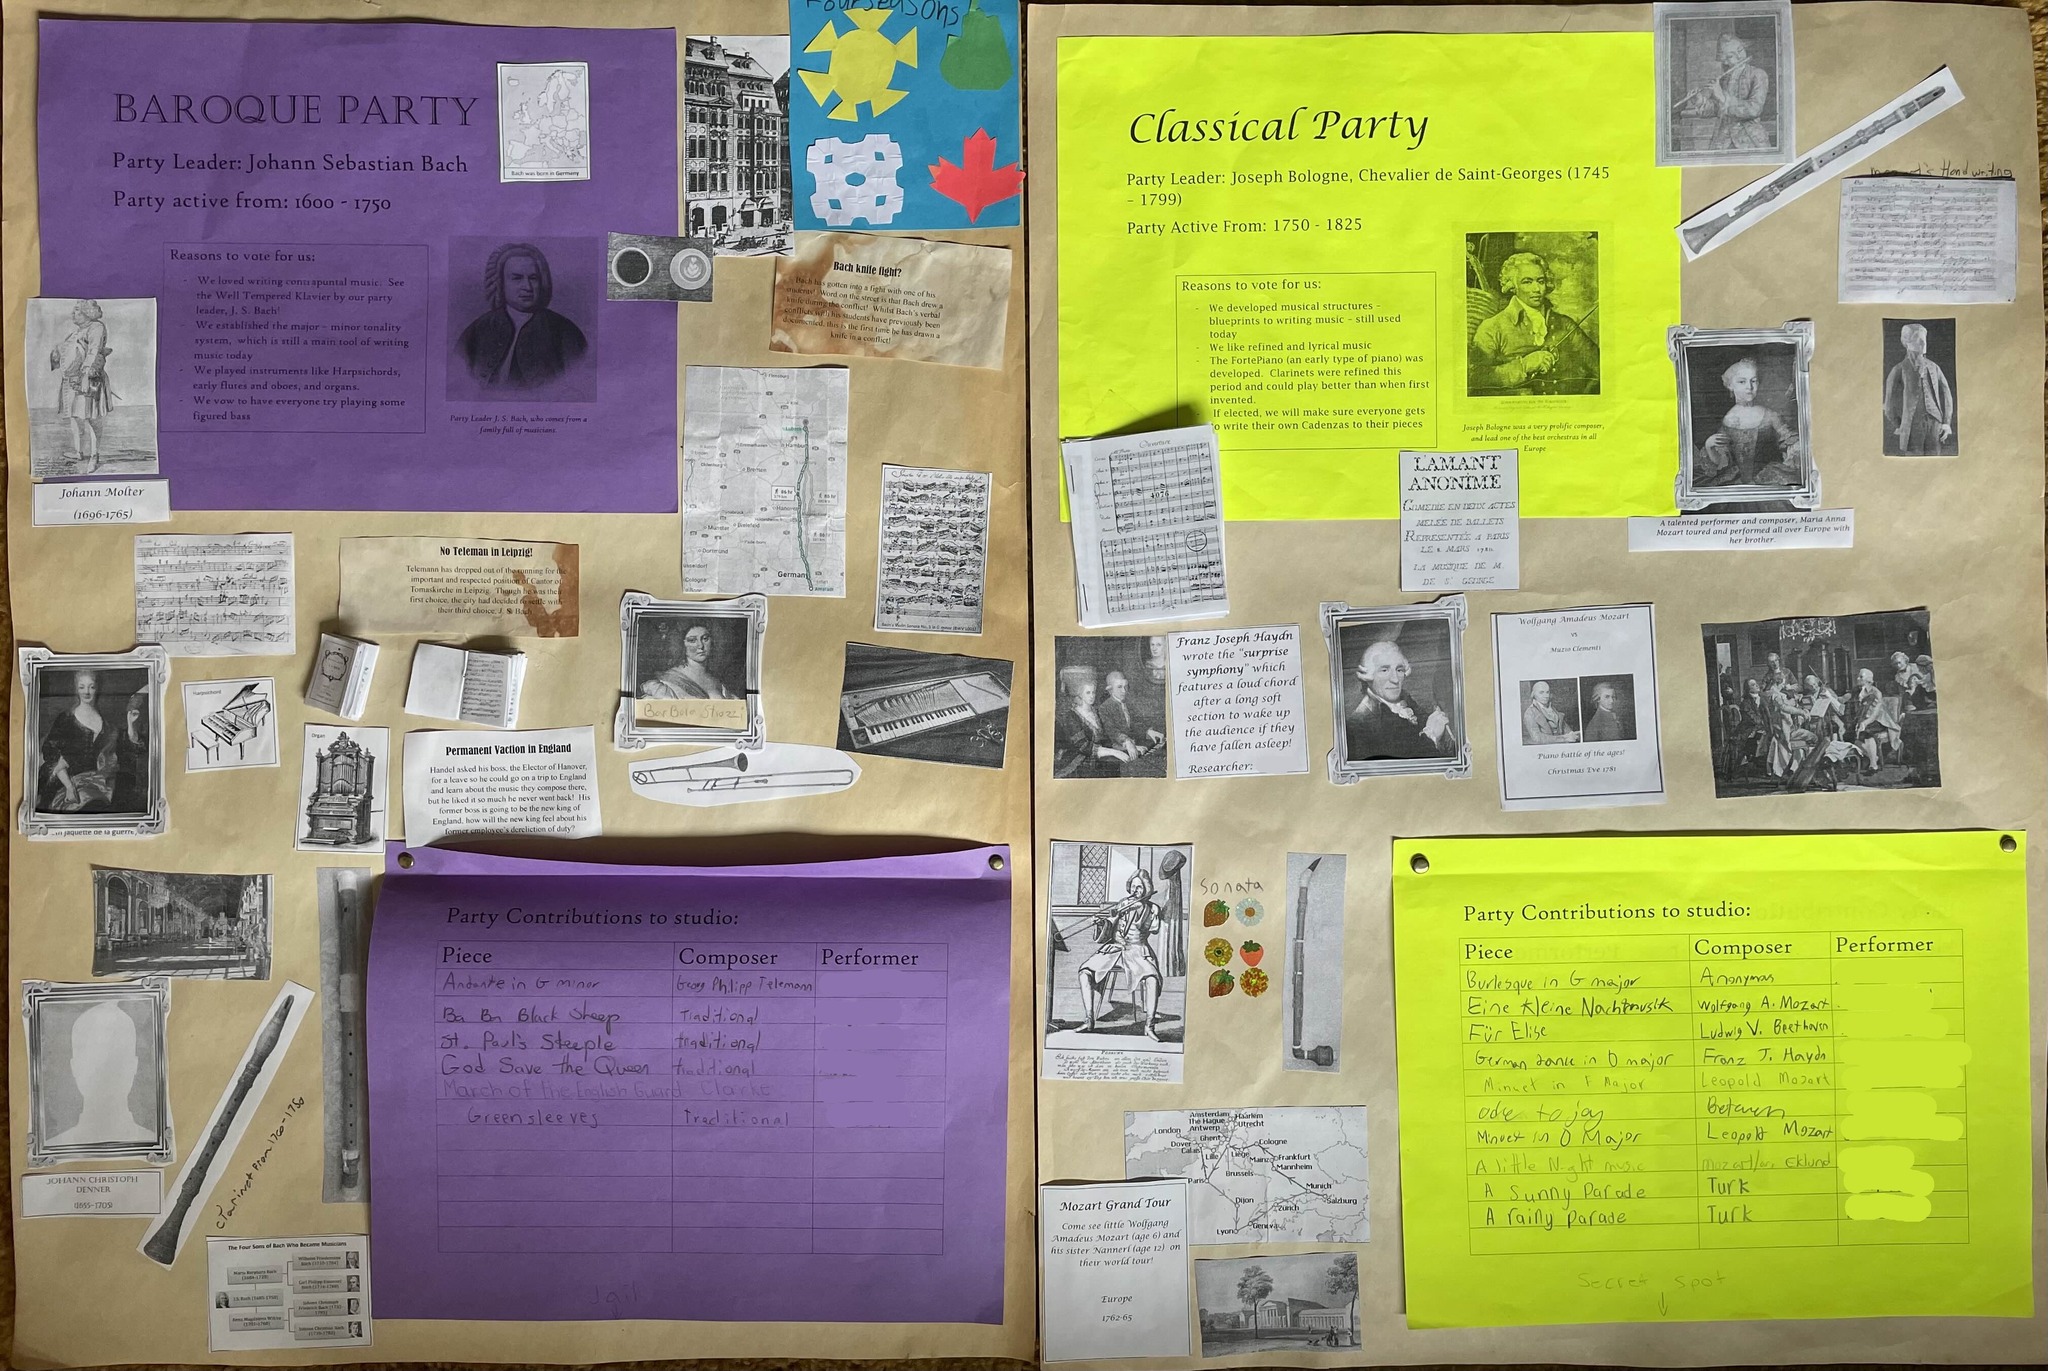 Four Seasons!
BAROQUE PARTY
Party Leader: Johann Sebastian Bach
Party active from: 1600 - 1750
Bach was born in Germany
Reasons to vote for us:
- We loved writing contrapuntal music. See
the Well Tempered Klavier by our party
leader, J. S. Bach!
We established the major – minor tonality
system, which is still a main tool of writing
music today
- We played instruments like Harpsichords,
early flutes and oboes, and organs.
- We vow to have everyone try playing some
figured bass
Party Leader J. S. Bach, who comes from a
family full of musicians.
Bach knife fight?
Bach has gotten into a fight with one of his
students! Word on the street is that Bach drew a
knife during the conflict! Whilst Bach's verbal
conflicts with his students have previously been
documented, this is the first time he has drawn a
knife in a conflict!
Johann Molter
(1696-1765)
No Teleman in Leipzig!
Telemann has dropped out of the running for the
important and respected position of Cantor of
Tomaskirche in Leipzig. Though he was their
first choice, the city had decided to settle with
their third choice, J. S. Bach
Hamburg
Bremen
Hanover
Bielefeld
Münster
Dortmund
Cologne
German
Harpsichord
Organ
Permanent Vaction in England
Handel asked his boss, the Elector of Hanover,
for a leave so he could go on a trip to England
and learn about the music they compose there,
but he liked it so much he never went back! His
former boss is going to be the new king of
England, how will the new king feel about his
former employee's dereliction of duty?
BarBara Strozzi
jaquette de la guerre
JOHANN CHRISTOPH
DENNER
(1655-1707)
The Four Sons of Bach Who Became Musicians
Party Contributions to studio:
Piece Composer Performer
Andante in G minor Georg Philipp Telemann
Ba Ba Black Sheep Traditional
St. Paul's Steeple traditional
God Save the Queen traditional
March of the English Guard Clarke
Greensleeves Traditional
Classical Party
Party Leader: Joseph Bologne, Chevalier de Saint-Georges (1745
– 1799)
Party Active From: 1750 - 1825
Reasons to vote for us:
- We developed musical structures –
blueprints to writing music – still used
today
- We like refined and lyrical music
- The FortePiano (an early type of piano) was
developed. Clarinets were refined this
period and could play better than when first
invented.
If elected, we will make sure everyone gets
to write their own Cadenzas to their pieces
Joseph Bologne was a very prolific composer,
and lead one of the best orchestras in all
Europe
Mozart's Handwriting
Ouverture
4076
L'AMANT
ANONIME
COMEDIE EN DEUX ACTES
MELÉE DE BALLETS
REPRESENTÉE A PARIS
LE 8 MARS 1780
LA MUSIQUE DE M
DE ST GEORGE
A talented performer and composer, Maria Anna
Mozart toured and performed all over Europe with
her brother.
Franz Joseph Haydn
wrote the "surprise
symphony" which
features a loud chord
after a long soft
section to wake up
the audience if they
have fallen asleep!
Researcher:
Wolfgang Amadeus Mozart
vs
Muzio Clementi
Piano battle of the ages!
Christmas Eve 1781
Sonata
Amsterdam
Haarlem
The Hague
Utrecht
Antwerp
London
Ghent
Dover
Calais
Cologne
Lille
Liege
Mainz
Frankfurt
Mannheim
Brussels
Paris
Munich
Dijon
Salzburg
Zurich
Lyon
Geneva
Mozart Grand Tour
Come see little Wolfgang
Amadeus Mozart (age 6) and
his sister Nannerl (age 12) on
their world tour!
Europe
1762-65
Party Contributions to studio:
Piece Composer Performer
Burlesque in G major Anonymas
Eine Kleine Nachtmusik Wolfgang A. Mozart
Für Elise Ludwig V. Beethoven
German Dance in D major Franz J. Haydn
Minuet in F Major Leopold Mozart
ode to joy
Minuet in D Major Leopold Mozart
A little Night music Mozart/arr. Eklund
A Sunny Parade Turk
A rainy Parade Turk
Secret Spot